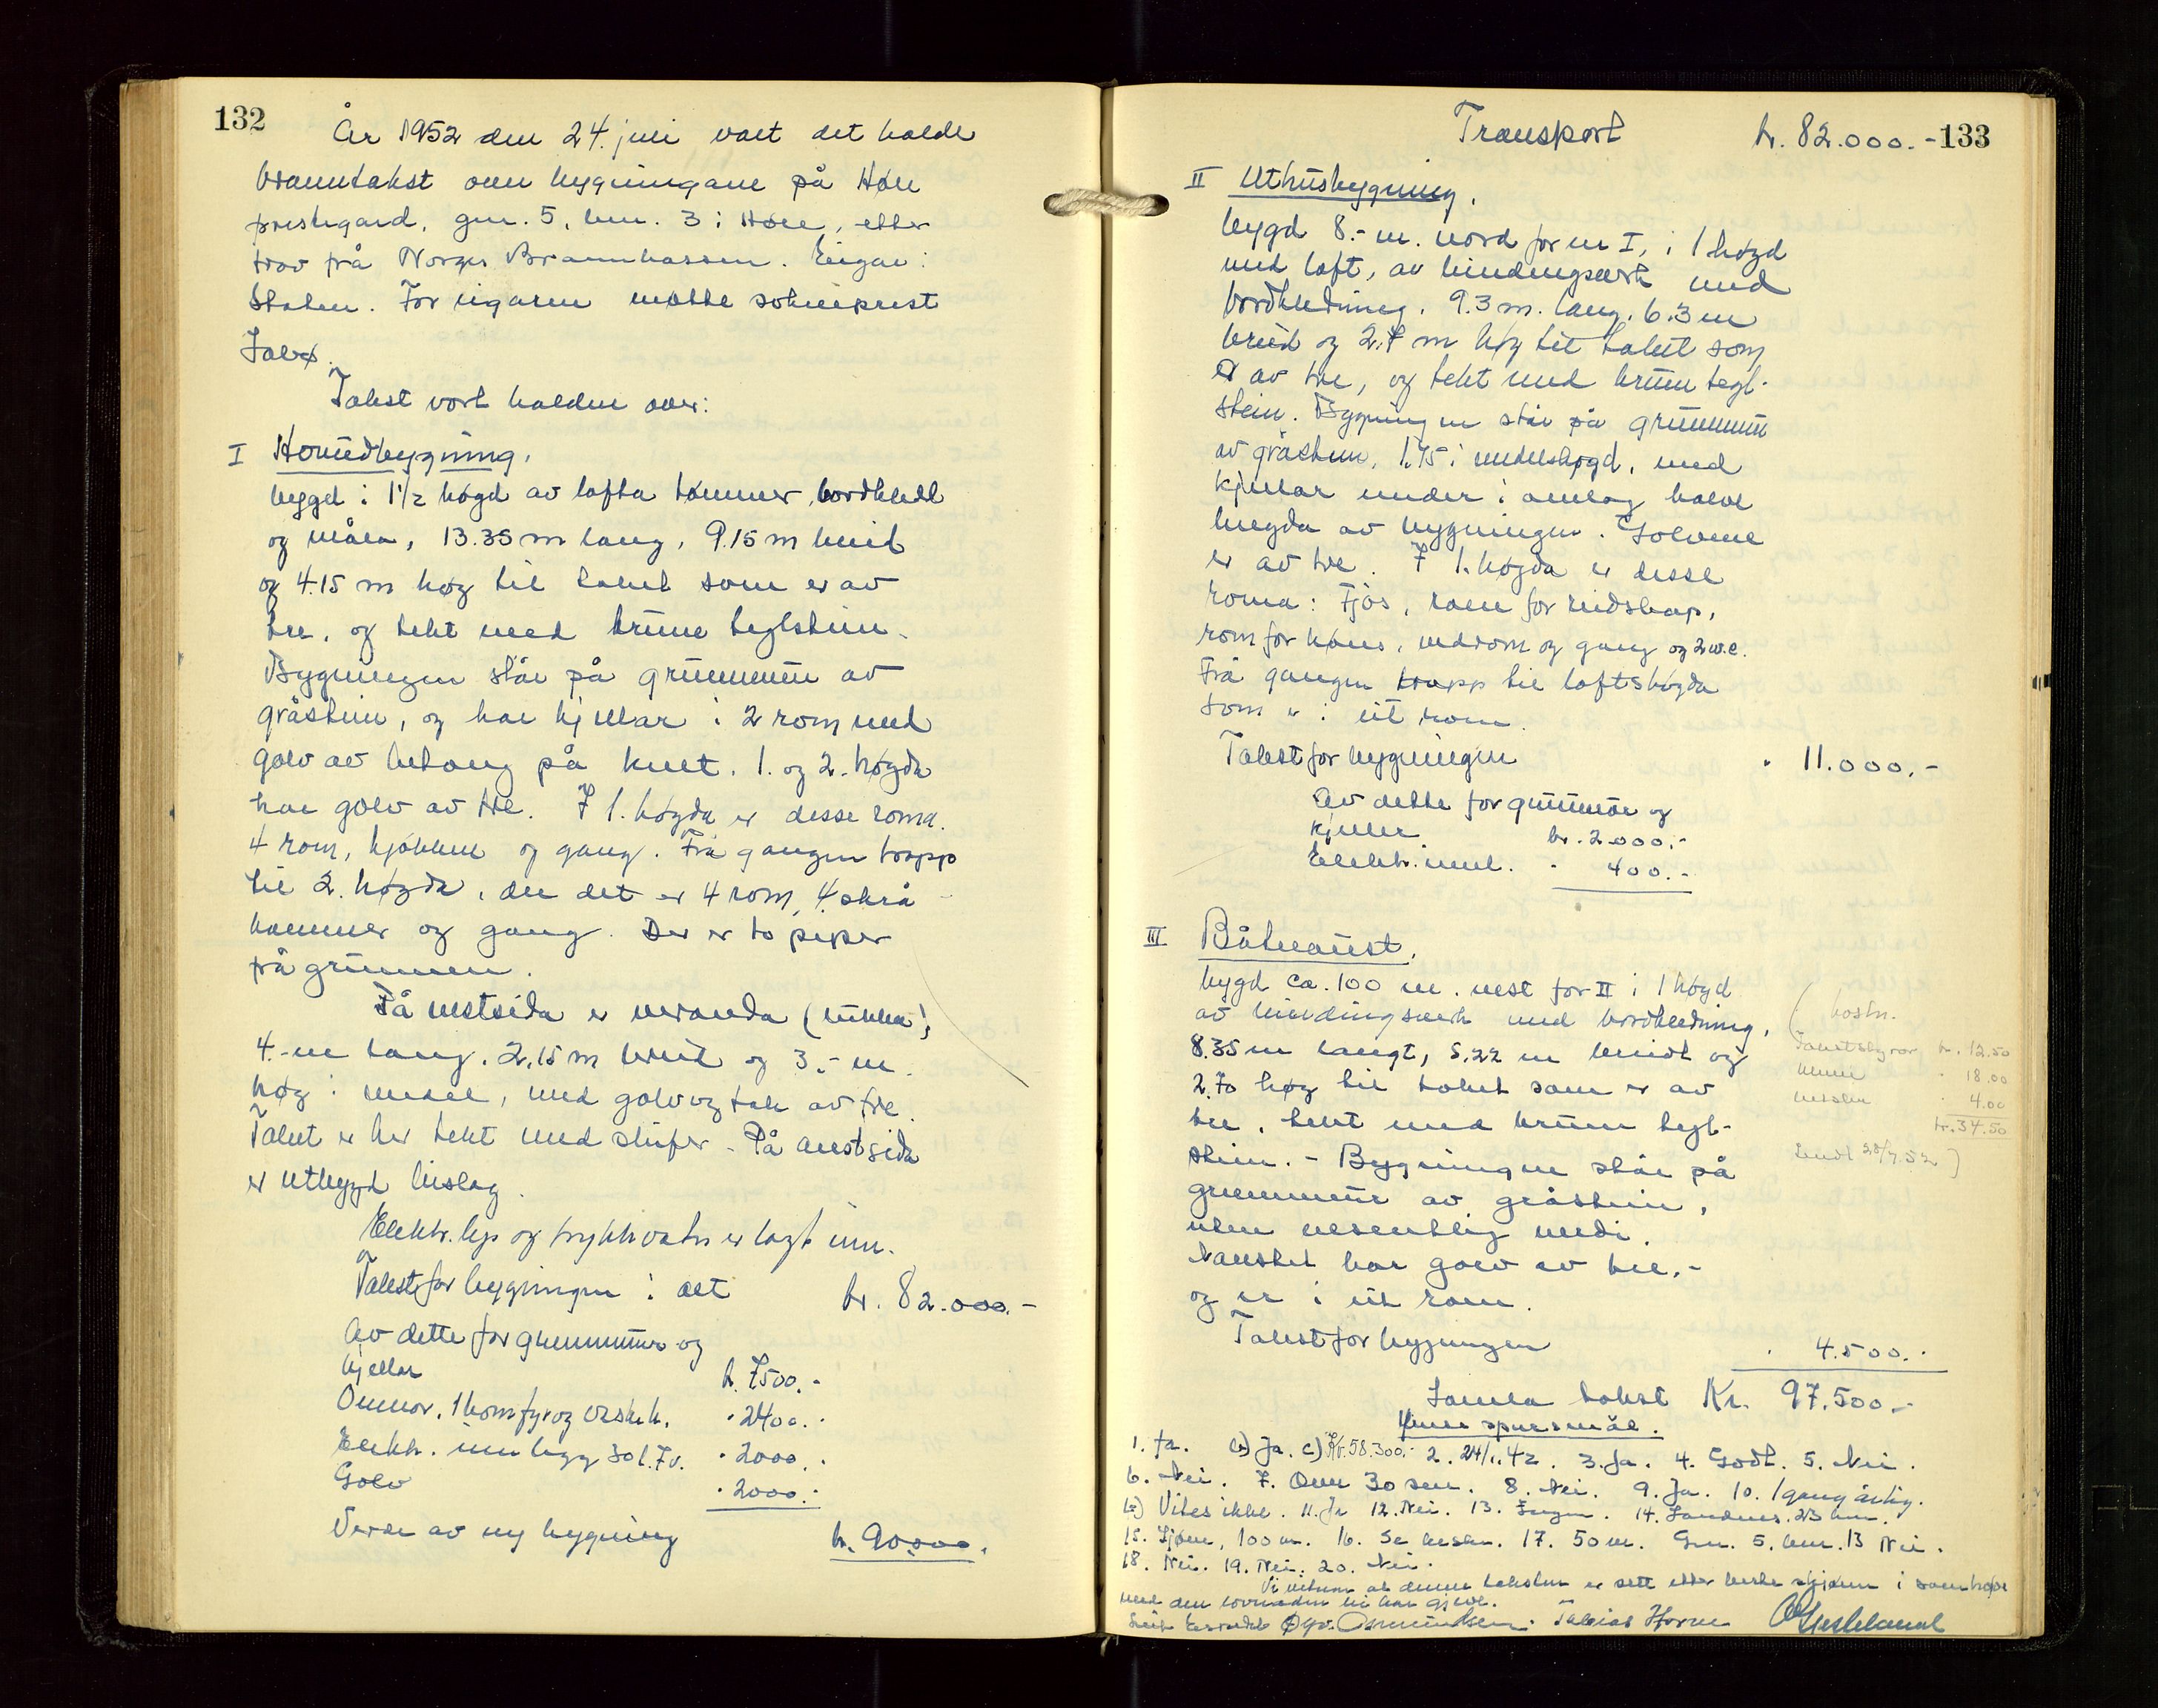 132
År 1952 den 24. juli vart det halde
branntakst over bygningane på Høle
prestegard, gnr. 5, bnr. 3 i Høle, etter
krav frå Norges Brannkassen. Eigar:
Staten. For eigaren møtte sokneprest
Takst vart halden over:
I Hovudbygning,
byggd i 1 1/2 høgd av lafta tømmer, bordkledd
og måla, 13.35 m lang, 9.15 m breid
og 4.15 m høg til taket som er av
tre, og tekt med brune teglstein.
Bygningen står på grunnmur av
gråstein, og har kjellar i 2 rom med
golv av betong på kult. 1. og 2. høgda
har golv av tre. I 1. høgda er desse roma.
4 rom, kjøkken og gang. Frå gangen trapp
til 2. høgda, der det er 4 rom, 4 skrå-
kammer og gang. Der er to piper
frå grunnen.
På vestsida er veranda (lukka),
4.- m lang, 2,15 m breid og 3,- m.
høg i medel, med golv og tak av tre.
Taket er her tekt med skifer. - På austsida
er utbygd bislag.
Elektr. lys og trykkvatn er lagt inn.
Takst for bygningen i alt kr. 82.000.-
Av dette for grunnmur og
kjellar kr. 7500.-
Omnar, 1 komfyr og vaskek. " 2400.-
Elektr. innlegg 30 l. Fv. " 2000.-
Golv " 2000.-
Verde av ny bygning kr. 90.000.
Transport kr. 82.000.- 133
II Uthusbygning,
bygd 8.- m. nord for nr I, i 1 høgd
med loft, av bindingsverk med
bordkledning. 9.3 m. lang, 6.3 m
breid og 2.7 m høg til taket som
er av tre, og tekt med brun tegl-
stein. Bygningen står på grunnmur
av gråstein, 1.75 i medelshøgd, med
kjellar under i omlag halve
lengda av bygningen. Golvene
er av tre. I 1. høgda er desse
roma: Fjøs, rom for reidskap,
rom for høns, vedrom og gang og 2 w.c.
Frå gangen trapp til loftshøgda
som er i eit rom.
Takst for bygningen " 11.000.-
Av dette for grunnmur og
kjeller kr. 2.000.-
Elektr. innl. " 400.-
III Båtnaust,
bygd ca. 100 m. vest for II i 1 høgd
av bindingsverk med bordkledning,
8.35 m langt, 5,22 m breidt og
2.70 høg til taket som er av
tre, tekt med brun tegl-
stein. - Bygningen står på
grunnmur av gråstein,
uten vesentlig verdi.
Naustet har golv av tre,-
og er i eit rom.
Takst for bygningen " 4.500.-
(kostn.
Takstskyss kr. 12.50
" 18.00
" 4.00
kr. 34.50
Sendt 28/7.52)
Samla takst Kr. 97.500.-
Ymse spursmål.
1. Ja. b) Ja. c) Kr. 58.300.- 2. 24/1.42. 3. Ja. 4. Godt. 5. Nei.
6. Nei. 7. Over 30 sm. 8. Nei. 9. Ja. 10. 1 gang årlig.
b) Vites ikke. 11. Ja 12. Nei. 13. Ingen. 14. Sandnes. 23 km.
15. Sjøen, 100 m. 16. Se beskr. 17. 50 m. Gnr. 5. bnr. 13 Nei.
18. Nei. 19. Nei. 20. Nei.
Vi vitnar at denne taksten er sett etter beste skjønn i samhøve
med den lovnaden vi har gjeve.
Osmundsen. Tobias